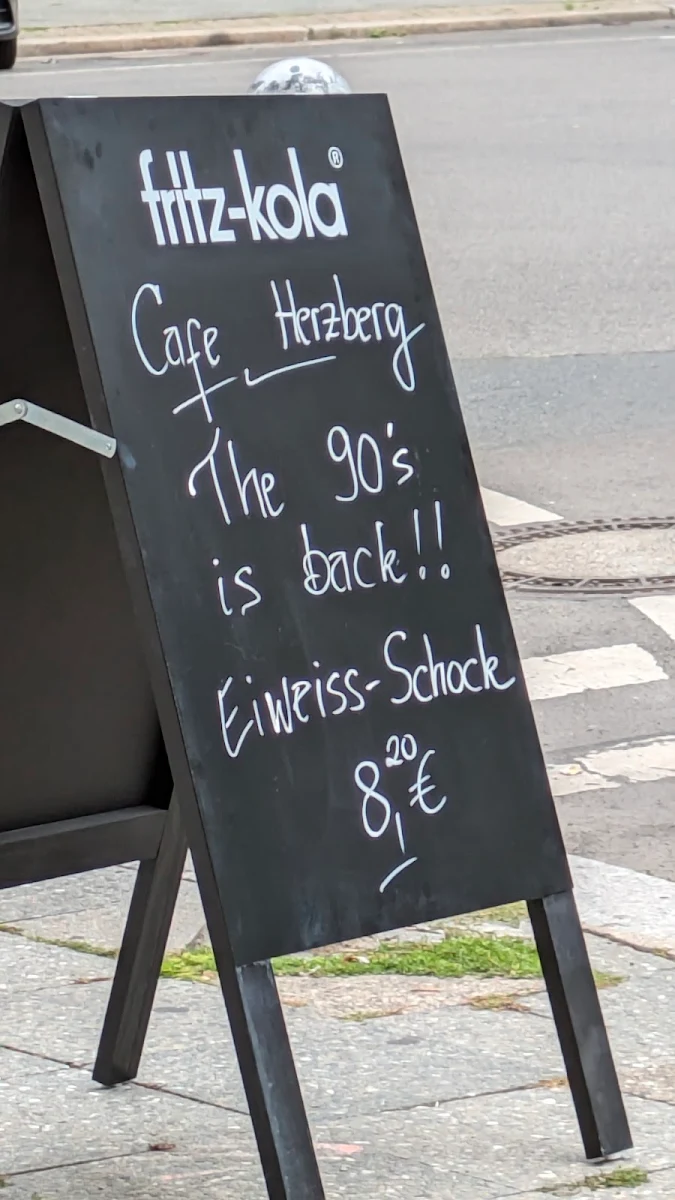 fritz-kola®
Cafe Herzberg
The 90's
is back!!
Eiweiss-Schock
8,20€